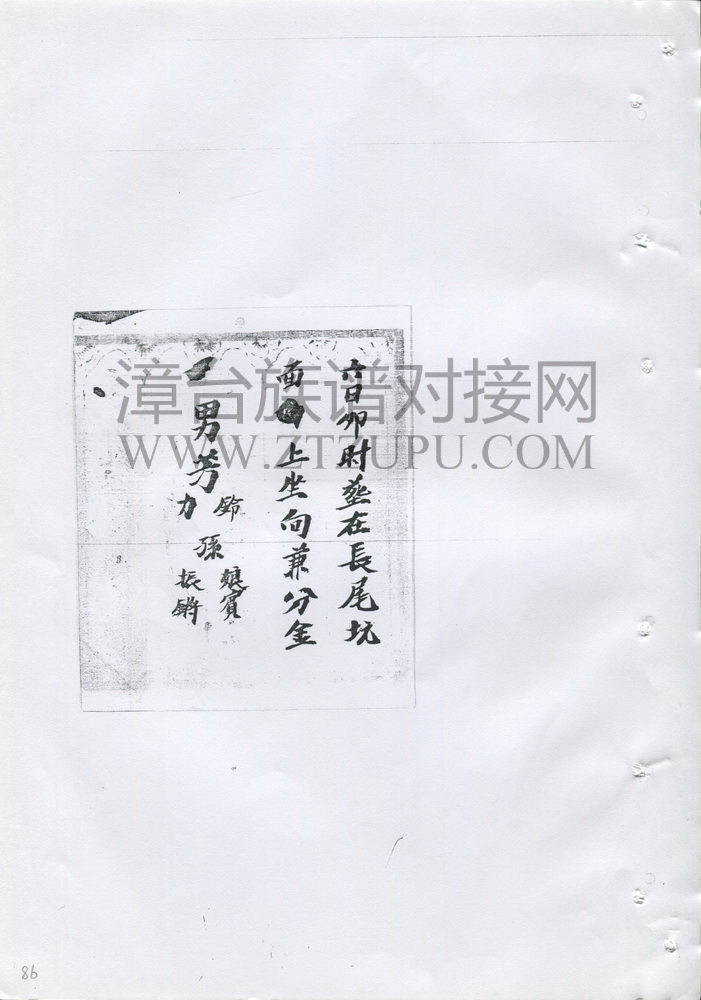 六日卯时塟在長尾坑
面上坐向兼分金
男芳
鈴
力
孫
賓
振
漳台族谱对接网
WWW.ZTZUPU.COM
86